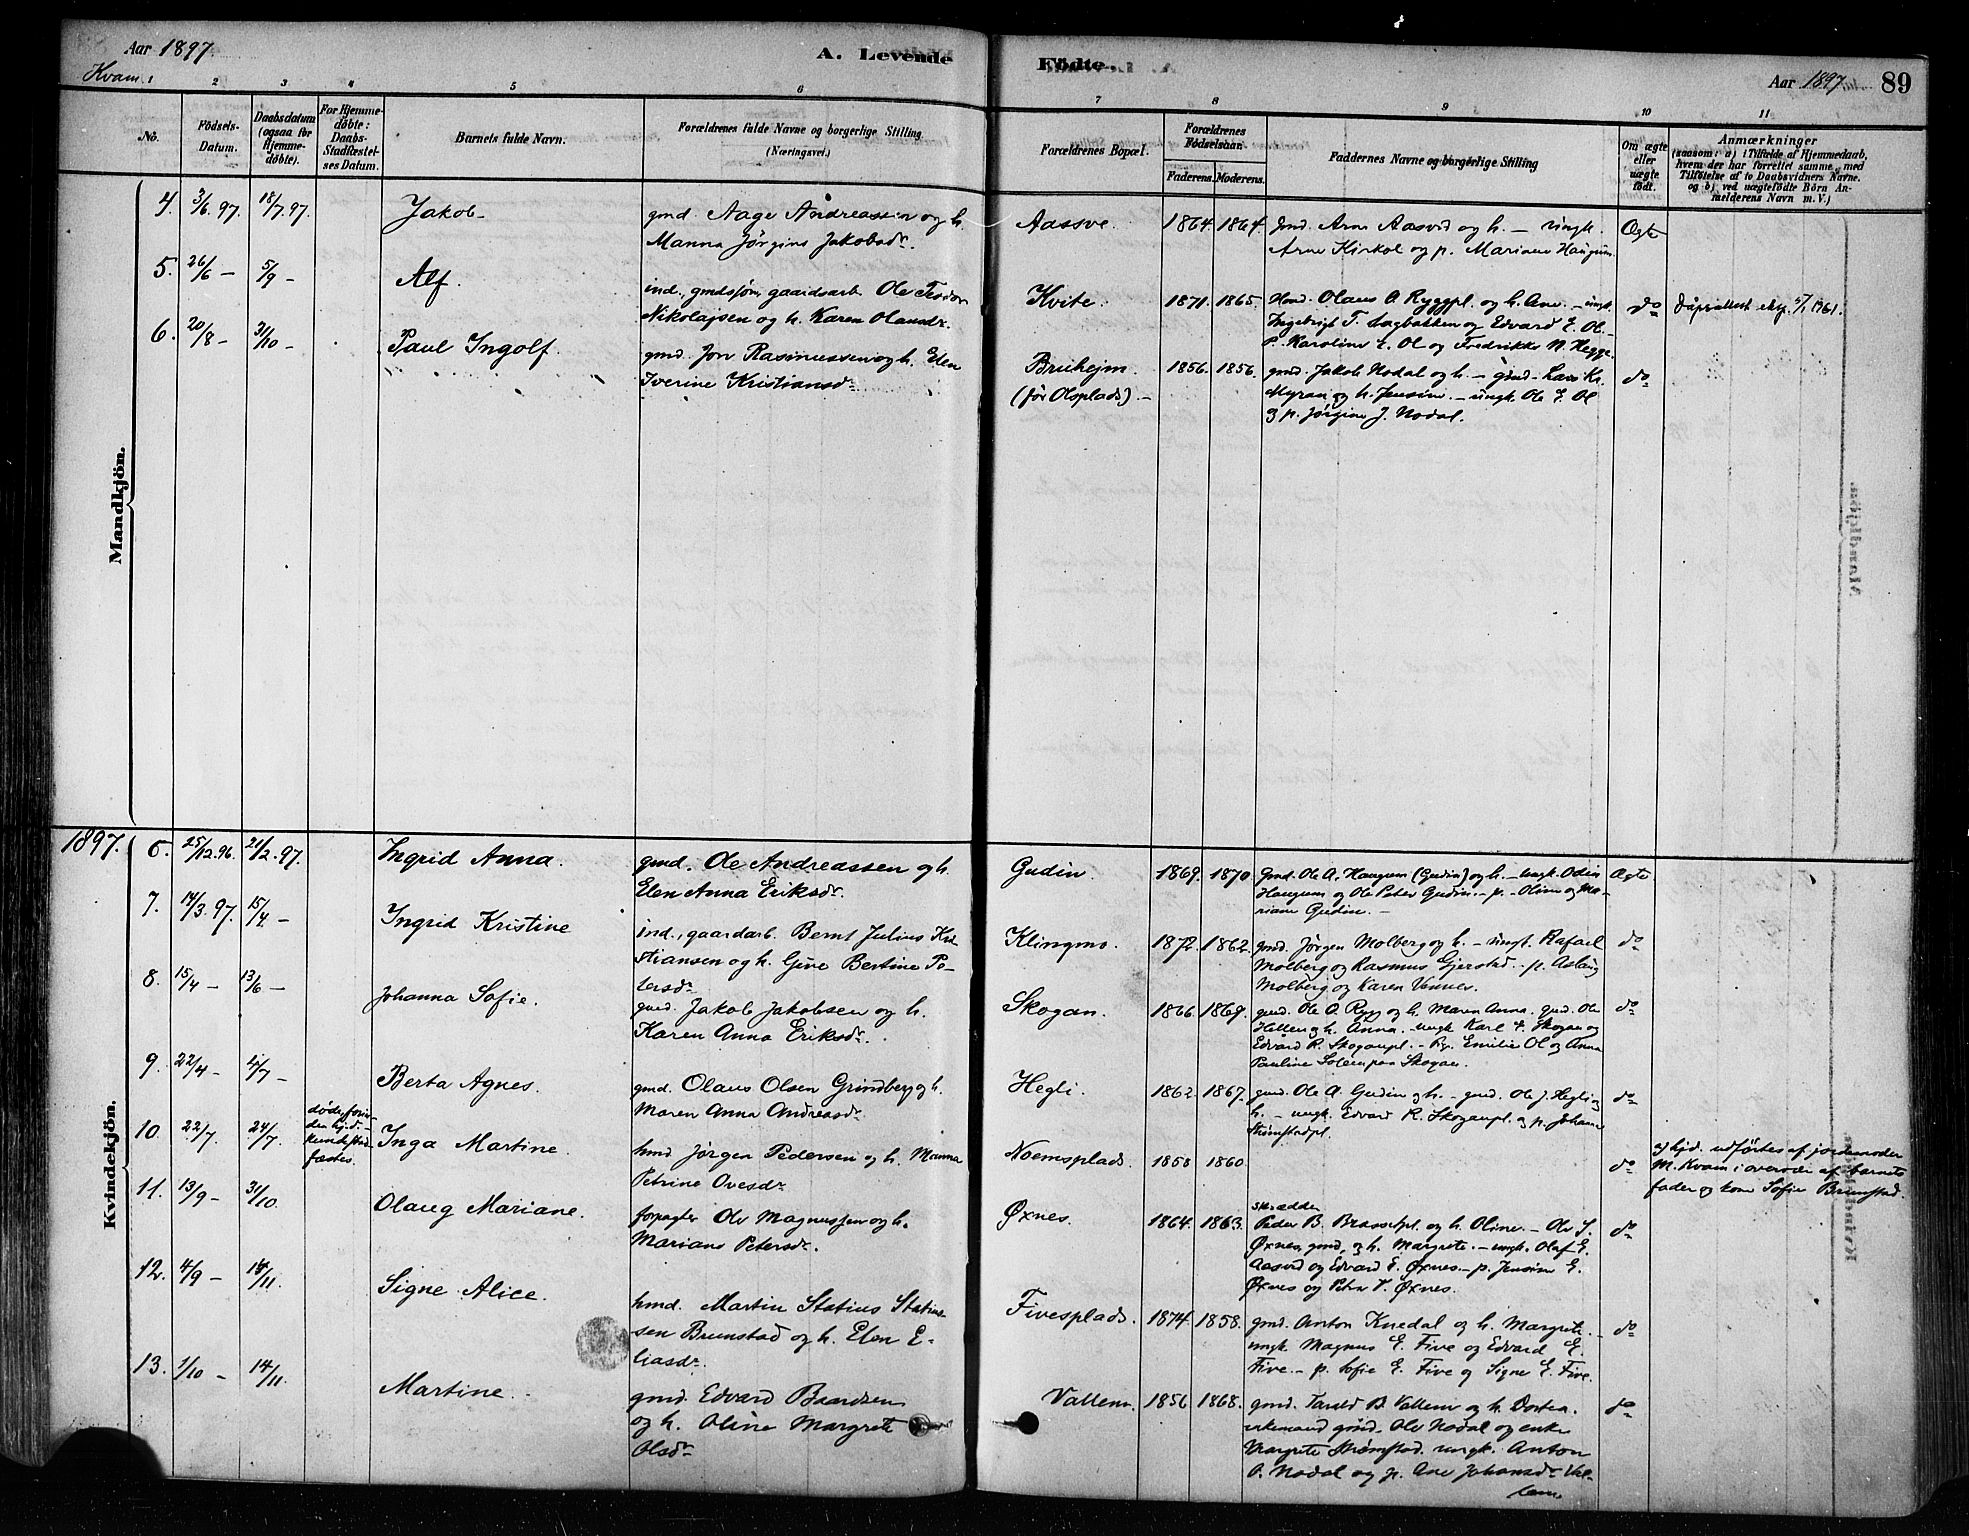 Aar 1897.
Kvam.
A. Levende Födte.
Aar 1897.
89
1 2 3 4 5 6 7 8 9 10 11
No. Födsels-Datum. Daabsdatum (ogsaa for Hjemmedøbte). For Hjemmedøbte: Daabs-Stadfæstelses Datum. Barnets fulde Navn. Forældrenes fulde Navne og borgerlige Stilling (Næringsvei.) Forældrenes Bopæl. Forældrenes Födselsaar Faderens. Moderens. Faddernes Navne og borgerlige Stilling Om ægte eller uægte födt. Anmærkninger
(saasom: a) i Tilfælde af Hjemmedaab, hvem der har forrettet samme, med Tilföielse af to Daabsvidners Navne. og b) ved uægtefödte Börn Anmelderens Navn m. V.)
Mandkjön.
4. 3/6. 97. 18/7. 97. Jakob. gmd. Aage Andreassen og h.
Manna Jørgine Jakobsdr.
Aasve. 1864. 1864. Gmd. Arne Aasvid og h. — ungk.
Arne Kirkol og p. Mariane Haugum.
Ægte
5. 26/6 — 5/9 — Alf. ind., gmdssøn, gaardsarb. Ole Teodor
Nikolajsen og h. Karen Olausdr.
Kvite. 1871. 1865. Hmd. Olaus O. Ryggpl. og h. Ane. — ungk.
Ingebrigt T. Lagbakken og Edvard E. Ol —
p. Karoline E. Ol og Fredrikke N. Hegge.
do
Dåpsattest 1961.
6. 20/8 — 31/10 — Paul Ingolf. gmd. Jon Rasmussen og h. Elen
Iverine Kristiansdr.
Bruhejm.
(før Olsplads). —
1856. 1856. gmd. Jakob Nodal og h. — gmd. Lars Kr.
Myran og h. Jensine. — ungk. Ole E. Ol
og p. Jørgine J. Nodal.
do
Kvindekjön.
1897. 6. 25/12. 96. 21/2. 97. Ingrid Anna. gmd. Ole Andreassen og h.
Elen Anna Eriksdr.
Gudin. 1869. 1870. Gmd. Ole A. Haugum (Gudin) og h. — ungk. Odin
Haugum og Ole Peter Gudin. — p. Oline og Ma-
riane Gudin. —
Ægte
7. 14/3. 97. 15/4 — Ingrid Kristine ind., gaardarb. Bernt Julius Kri
stiansen og h. Gine Bertine Pe-
tersdr.
Klingmo. 1872. 1862. gmd. Jørgen Molberg og h. — ungk. Rafael
Molberg og Rasmus Gjerstad. — p. Aslaug
Molberg og Karen Vannes.
do
8. 15/4 — 13/6 — Johanna Sofie. gmd. Jakob Jakobsen og h.
Karen Anna Eriksdr.
Skogan. 1866. 1869. gmd. Ole O. Rygg og h. Maren Anna. gmd. Ole
Hallem og h. Anna. — ungk. Karl F. Skogan og
Edvard R. Skoganpl. — p. Emilie Ol og Anna
Pauline Solem paa Skogan.
do
9. 22/4 — 4/7 — Berta Agnes. gmd. Olaus Olsen Grindberg og h.
Maren Anna Andreasdr.
Hegli. 1862. 1867. gmd. Ole A. Gudin og h. — gmd. Ole J. Hegli og
h. — ungk. Edvard R. Skoganpl. og p. Johanna
Strømstadpl.
do
10. 22/7. 24/7. døde, forin-
den hjd. —
kunde stad-
fæstes.
Inga Martine. hmd Jørgen Pedersen og h. Manna
Petrine Ovesdr.
Noemsplads. 1858 1860. do
a) hjd. udførtes af jordemoder
M. Kvam i overvær af barnets
fader og kone Sofie Brunstad.
11. 13/9 — 31/10. Olaug Mariane. forpagter Ole Magnussen og h.
Mariane Petersdr.
Øxnes. 1864. 1863. skrædder
Peder B. Brassetpl. og h. Oline. — Ole S.
Øxnes, gmd, og h. Margrete. — ungk. Olaf E.
Aasvid og Edvard E. Øxnes. — p. Jensine E.
Øxnes og Petra V. Øxnes.
do
12. 4/9 — 14/11. Signe Alice. hmd. Martin Statius Statius-
sen Brunstad og h. Elen E-
liasdr.
Fivesplads. 1874. 1858. gmd. Anton Knedal og h. Margrete. —
ungk Magnus E. Five og Edvard E.
Five. — p. Sofie E. Five og Signe E. Five.
do
13. 1/10 — 14/11. Martine. gmd. Edvard Baardsen
og h. Oline Margrete
Olsdr.
Vallem. 1856 1868. gmd. Tarald B. Vallem og h. Dortea.
enkemand gmd. Ole Nodal og enke
Margrete Strømstad. ungk. Anton
O. Nodal og p. Ane Johansdr Val-
lem.
do